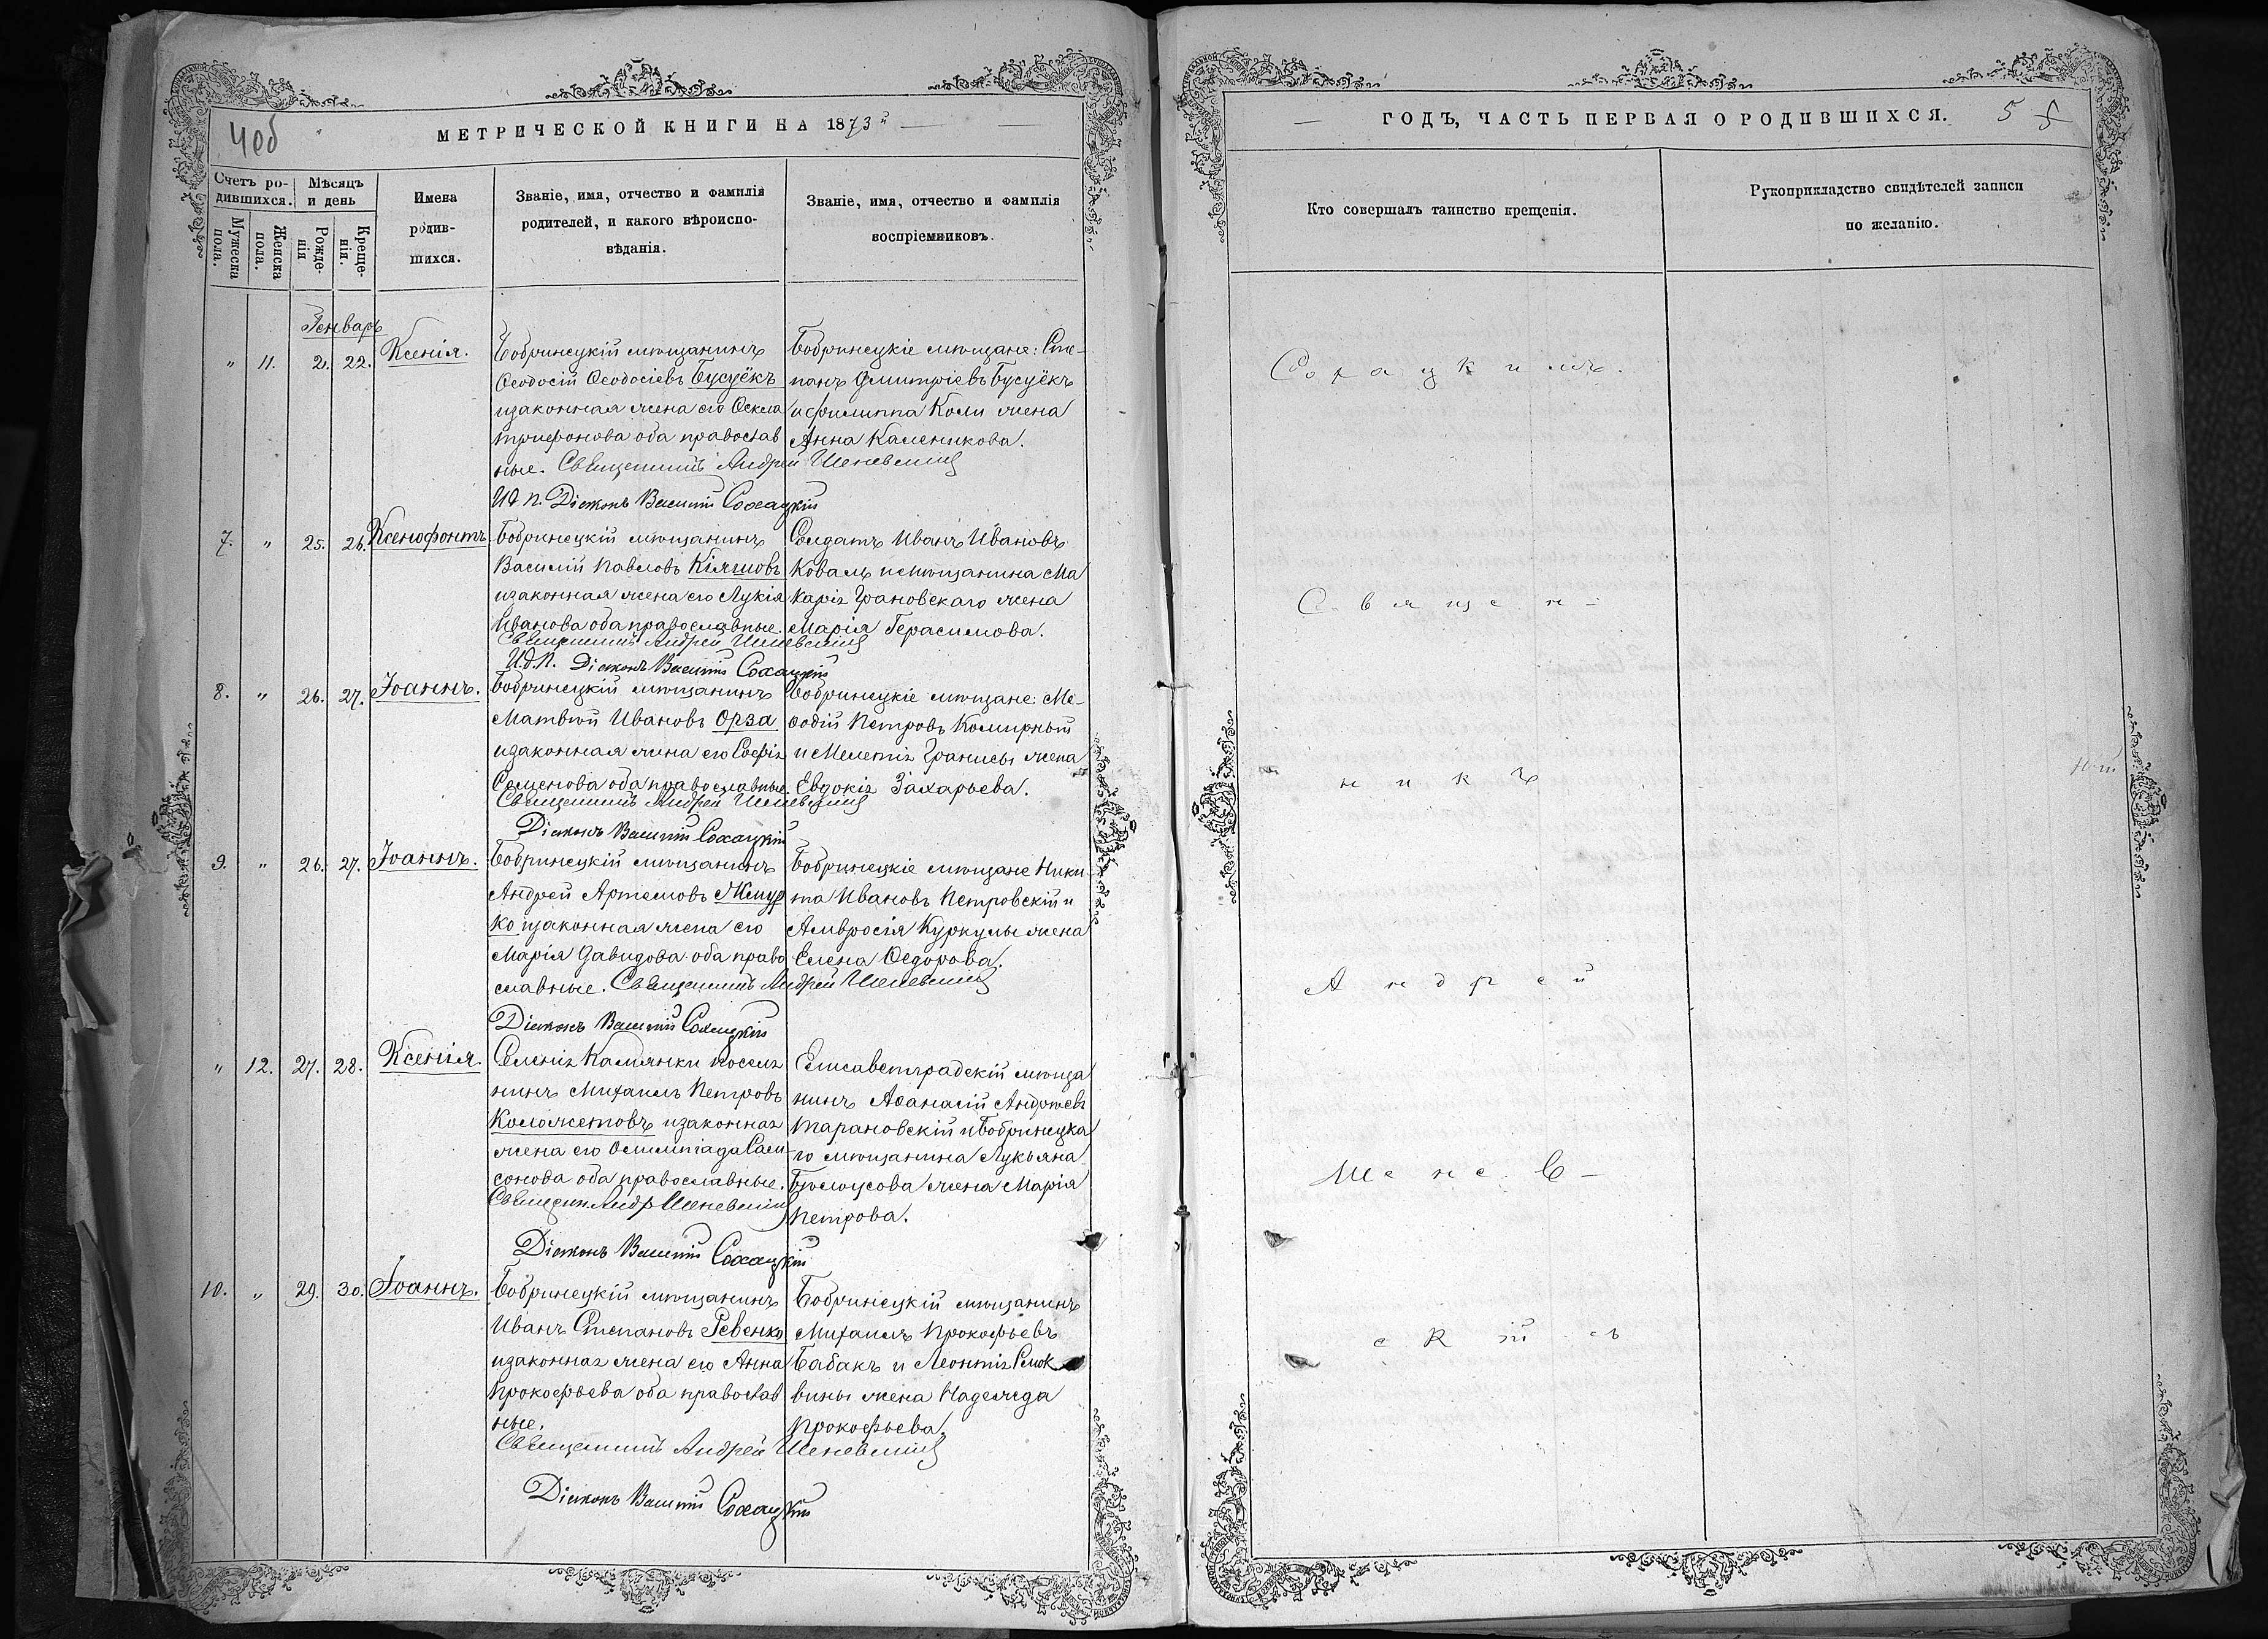 406
МЕТРИЧЕСКОЙ КНИГИ НА 1873й
Счетъ родившихся.
Мѣсяцъ и день
Имена родив-
шихся.
Званіе, имя, отчество и фамилія
родителей, и какого вѣроиспо-
вѣданія.
Званіе, имя, отчество и фамилія
воспріемниковъ.
Мужеска пола.
Женска пола.
Рожде-
нія
Креще-
нія.
Генварь
" 11. 21. 22. Ксенія.
Бобринецкій мѣщанинъ
Ѳеодосій Ѳеодосіевъ Бусуёкъ
изаконная жена его Ѳекла
Трифонова оба православ
ные. Священникъ Андрей
И.д.п. Діаконъ Василій Сохацкій
Бобринецкіе мѣщане: Сте-
панъ Дмитріевъ Бусуёкъ
и Филиппа Коли жена
Анна Каленикова.
7. " 25. 26. Ксенофонтъ
Бобринецкій мѣщанинъ
Василій Павловъ Кіяшовъ
изаконная жена его Лукія
Иванова оба православные.
Священникъ Андрей
И.д.п. Діаконъ Василій Сохацкій
Солдатъ Иванъ Ивановъ
Коваль и мѣщанина Ма
карія Грановскаго жена
Марія Герасимова.
8. " 26. 27. Іоаннъ.
Бобринецкій мѣщанинъ
Матвѣй Ивановъ Орза
изаконная жена его Софія
Семенова оба православные.
Священникъ Андрей
Діаконъ Василій Сохацкій
Бобринецкіе мѣщане: Ме-
ѳодій Петровъ Комирный
и Мелетія жена
Евдокія Захарьева.
9. " 26. 27. Іоаннъ.
Бобринецкій мѣщанинъ
Андрей Артемовъ Жмур
ко изаконная жена его
Марія Давидова оба право
славные. Священникъ Андрей
Діаконъ Василій Сохацкій
Бобринецкіе мѣщане Ники
та Ивановъ Петровскій и
Амвросія Куркулы жена
Елена Ѳедорова.
" 12. 27. 28. Ксенія.
Селенія Камянки поселя
нинъ Михаилъ Петровъ
Коложетовъ изаконная
жена его Олимпіада Сам
сонова оба православные.
Священ. Андр
Діаконъ Василій Сохацкій
Елисаветградскій мѣща
нинъ Аѳанасій Андреевъ
Тарановскій и Бобринецка
го мѣщанина Лукьяна
Бѣлоусова жена Марія
Петрова.
10. " 29. 30. Іоаннъ.
Бобринецкій мѣщанинъ
Иванъ Степановъ Ревенко
изаконная жена его Анна
Прокофьева оба православ
ные.
Священникъ Андрей
Діаконъ Василій Сохацкій
Бобринецкій мѣщанинъ
Михаилъ Прокофьевъ
Бабакъ и Леонтія Смок
вины жена Надежда
Прокофьева.
ГОДЪ, ЧАСТЬ ПЕРВАЯ О РОДИВШИХСЯ. 5
Кто совершалъ таинство крещенія.
Рукоприкладство свидѣтелей записи
по желанію.
Сохацкимъ.
Священ-
никъ
Андрей
Шенев-
скій съ